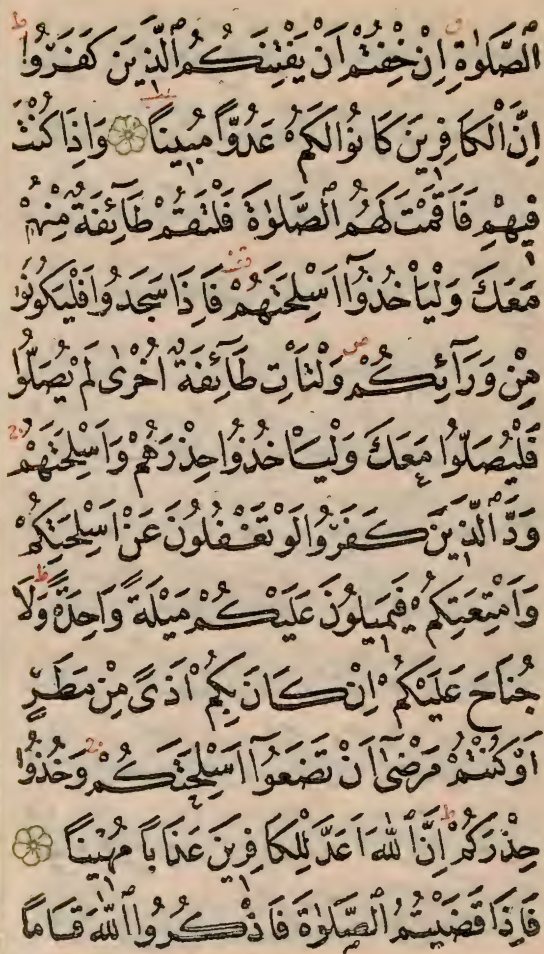 الصَّلٰوةِ اِنْ خِفْتُمْ اَنْ يَفْتِنَكُمُ الَّذِينَ كَفَرُوا
اِنَّ الْكَافِرِينَ كَانُوا لَكُمْ عَدُوًّا مُبِينًا وَاِذَا كُنْتَ
فِيهِمْ فَاَقَمْتَ لَهُمُ الصَّلٰوةَ فَلْتَقُمْ طَآئِفَةٌ مِنْهُمْ
مَعَكَ وَلْيَاْخُذُوٓا اَسْلِحَتَهُمْ فَاِذَا سَجَدُوا فَلْيَكُونُوا
مِنْ وَرَآئِكُمْ وَلْتَاْتِ طَآئِفَةٌ اُخْرٰى لَمْ يُصَلُّوا
فَلْيُصَلُّوا مَعَكَ وَلْيَاْخُذُوا حِذْرَهُمْ وَاَسْلِحَتَهُمْ
وَدَّ الَّذِينَ كَفَرُوا لَوْ تَغْفُلُونَ عَنْ اَسْلِحَتِكُمْ
وَاَمْتِعَتِكُمْ فَيَمِيلُونَ عَلَيْكُمْ مَيْلَةً وَاحِدَةً وَلَا
جُنَاحَ عَلَيْكُمْ اِنْ كَانَ بِكُمْ اَذًى مِنْ مَطَرٍ
اَوْ كُنْتُمْ مَرْضٰىٓ اَنْ تَضَعُوٓا اَسْلِحَتَكُمْ وَخُذُوا
حِذْرَكُمْ اِنَّ اللّٰهَ اَعَدَّ لِلْكَافِرِينَ عَذَابًا مُهِينًا
فَاِذَا قَضَيْتُمُ الصَّلٰوةَ فَاذْكُرُوا اللّٰهَ قِيَامًا